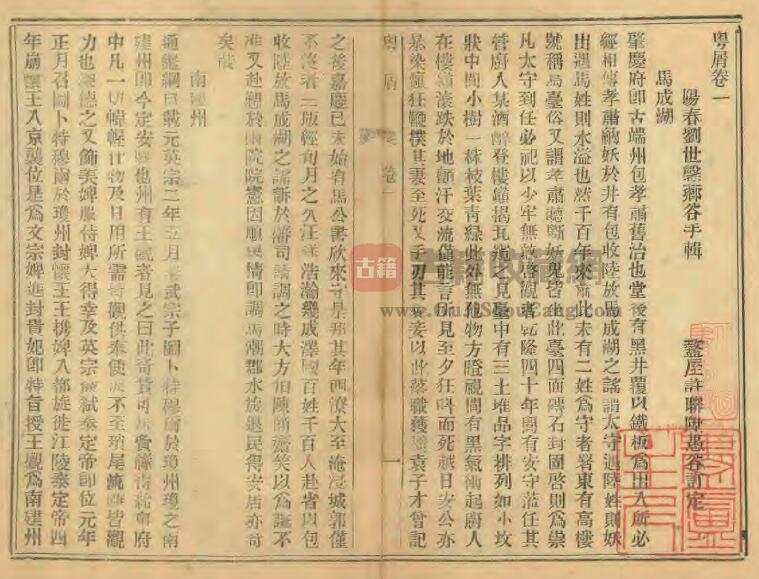 粵屑卷一
陽春劉世馨薌谷手輯
盩厔許聯陞愚谷訂定
馬成湖
肇慶府卽古端州包孝肅舊治也堂後有黑井覆以鐵板爲出入所必
經相傳孝肅納妖於井有包收陸放馬成湖之謠謂太守遇陸姓則妖
出遇馬姓則水溢也然千百年來而此未有二姓爲守者署東有高樓
號稱烏臺俗又謂孝肅聽斷妖鬼皆在此臺四面磚石封圍啓則爲祟
凡太守到任必祀以少牢無敢啓觀者乾隆四十年間有安守蒞任其
管府入某酒醉登樓巔揭瓦窺之見臺中有三土堆品字排列如小坟
狀中間小樹一株枝葉青綠此外無他物方瞪視間有黑氣衝起廚人
在樓巔滾跌於地顫汗交流僅能言所見至夕狂呌而死越日安公亦
暴染癲狂鞭撲其妻至死又手刃其愛妾以此落職獲譴袁子才曾記
粵屑 卷一 一
之後嘉慶已未始有馬公書欣來守是郡其年西潦大至淹浸城郭僅
不沒者三版經旬月之久汪洋浩瀚幾成澤國百姓千百人赴省以包
收陸放馬成湖之謠訴於藩司請調之時大方伯陳 笑以爲誕不
准又赴愬於兩院院憲因順民情卽調馬潮郡水旋退民得安居亦奇
矣哉
南建州
通鑑綱目載元英宗二年五月 武宗子圖卜特穆爾於瓊州瓊之南
建州卽今定安縣也州有王 者見之曰此奇貨可居 給資府
中凡一切幃幄什物及日用所需 觀供奉使 不至瑣尾流離皆觀
力也 德之又飾美婢服侍婢大得幸及英宗 弒泰定帝卽位元年
正月召圖卜特穆爾於瓊州封懷王王携婢入都旋徙江陵泰定帝四
年崩懷王入京襲位是爲文宗婢進封貴妃卽特旨授王觀爲南建州
古籍收藏網
www.GuJiShouCang.com